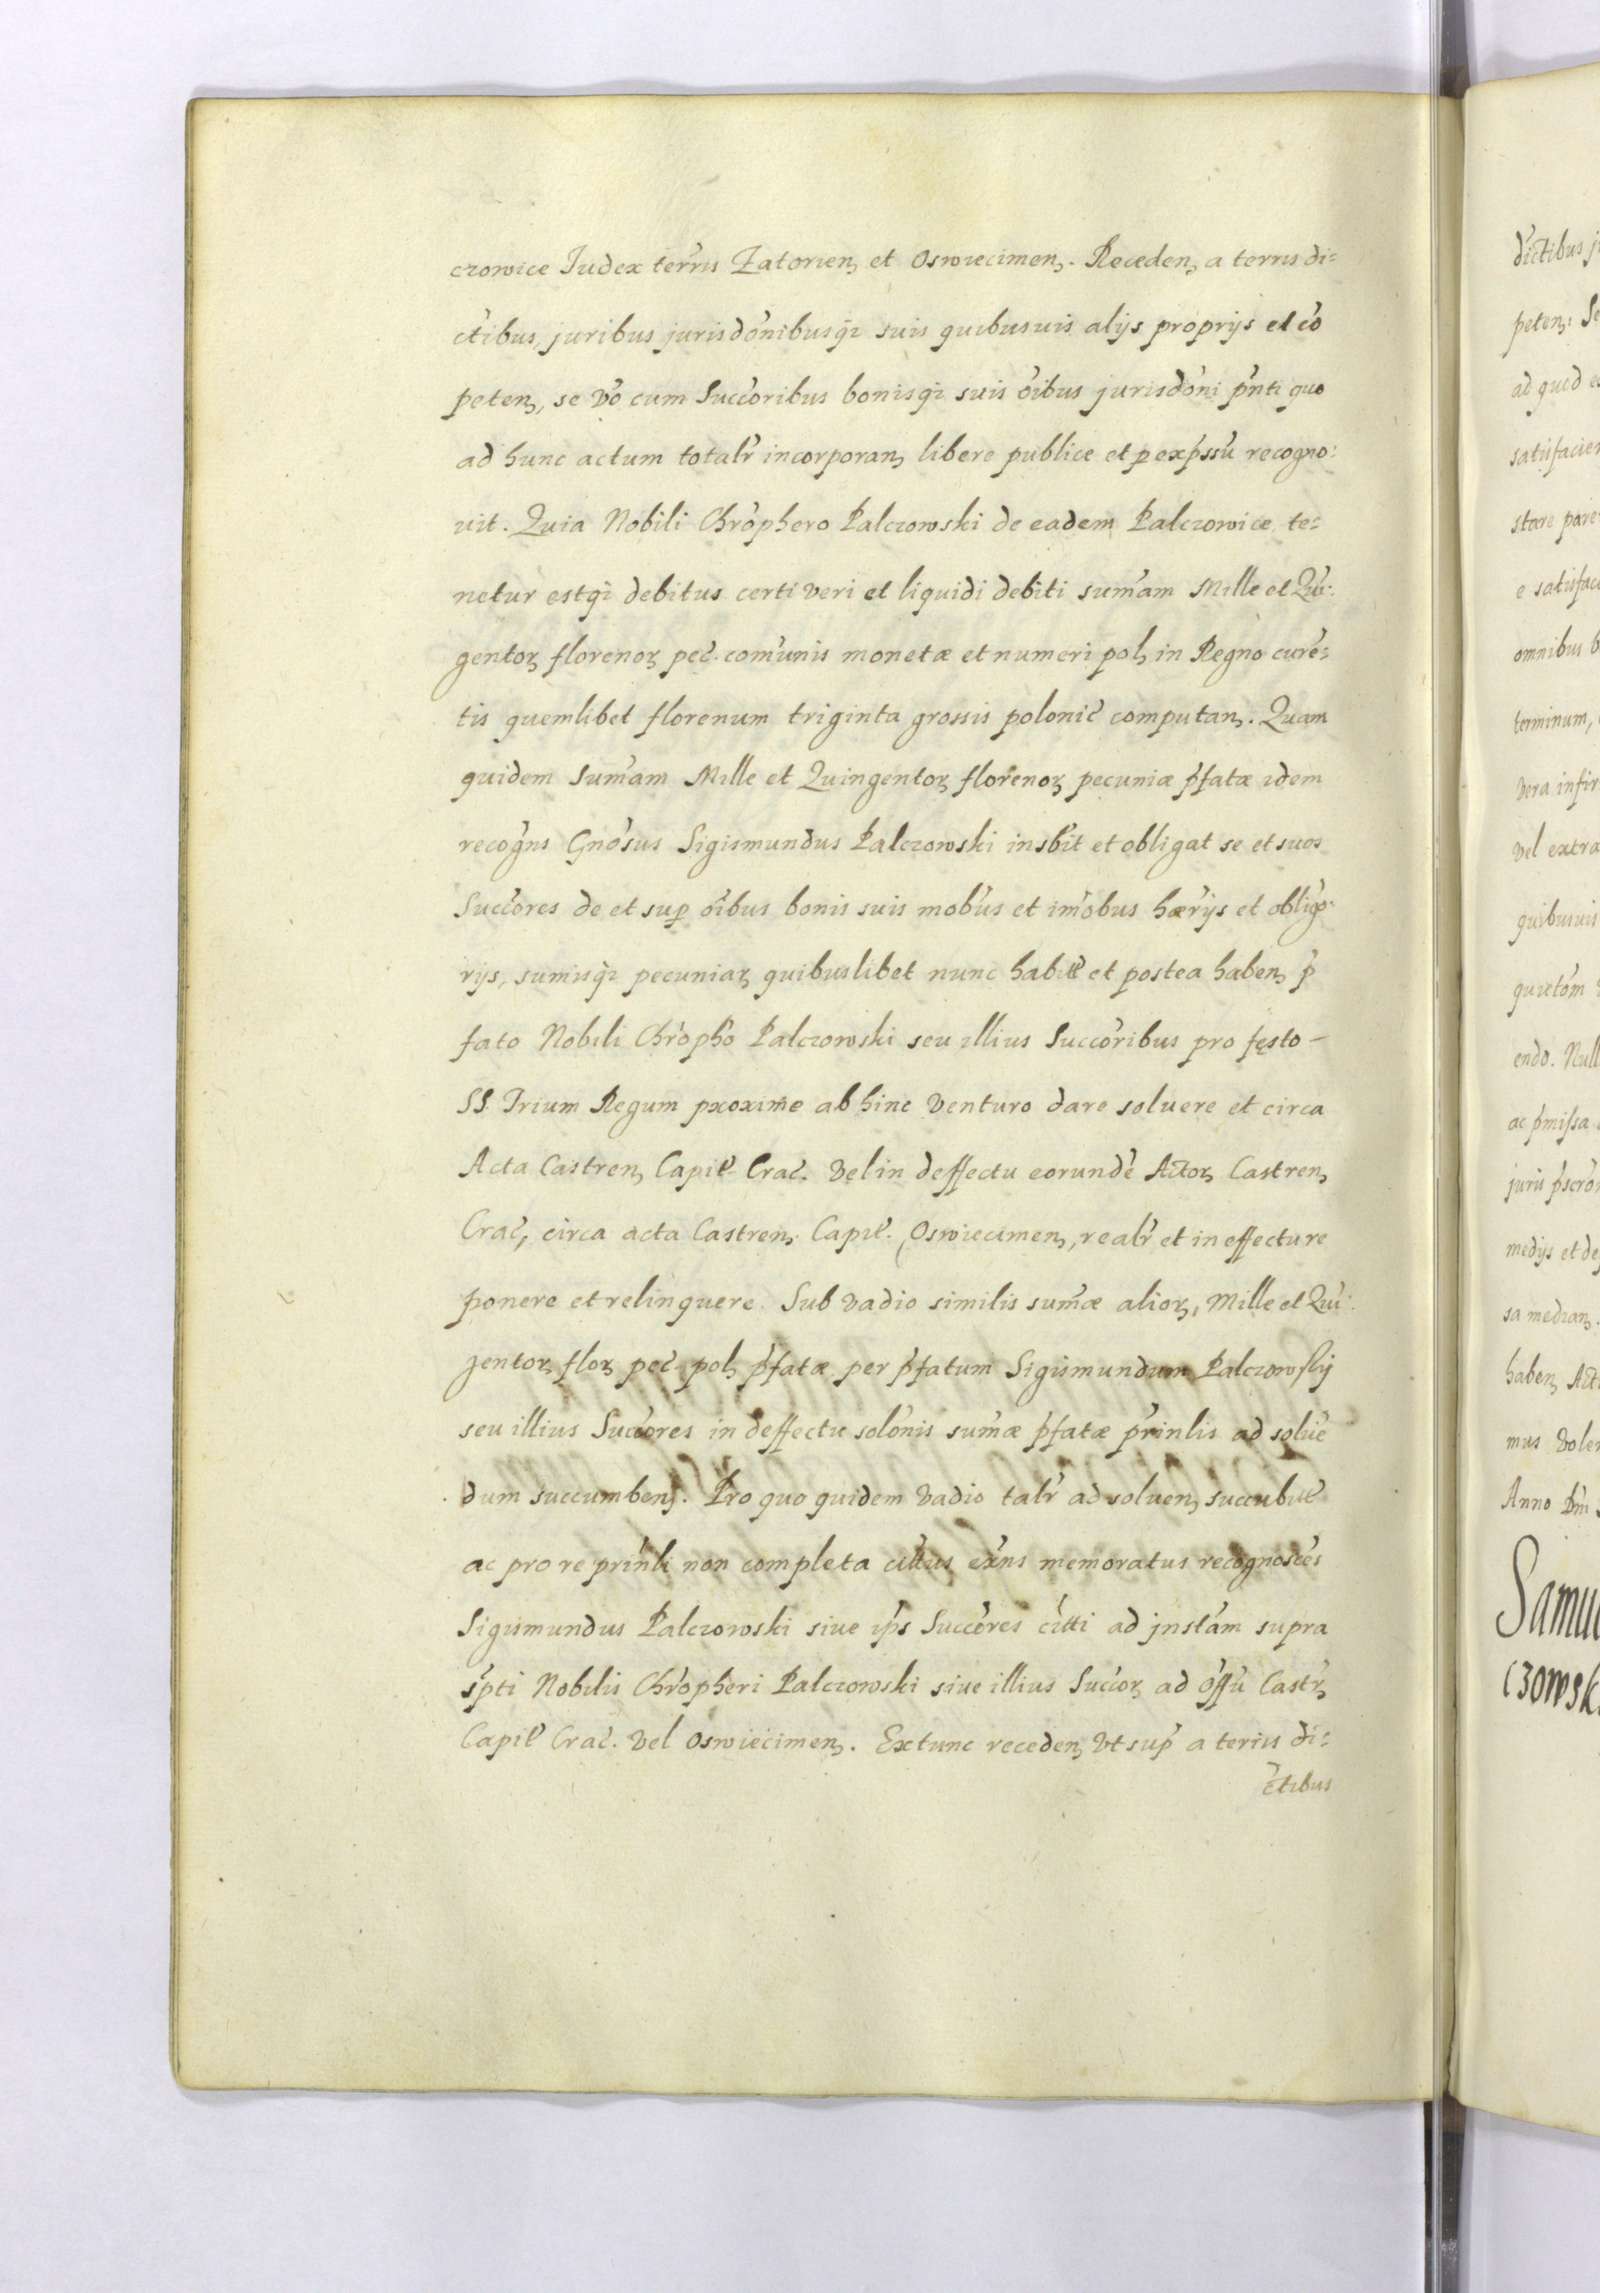 czowice Iudex terris Zatorien, et Oswiecimen,. Receden, a terris di=
ctibus, juribus jurisdonibusq3 suis quibusuis alijs proprijs et co
peten, se vo cum Succoribus bonisq3 suis oibus jurisdoni pnti quo
ad hunc actum totalr incorporan, libere publice et p expssu recogno:
uit. Quia Nobili Chrophero Palczowski de eadem Palczowice te=
netur estq3 debitus certi veri et liquidi debiti sumam Mille et Qui:
gentor, florenor, pec. comunis monetæ et numeri pol, in Regno cure=
tis quemlibet florenum triginta grossis polonic computan,. Quam
quidem Sumam Mille et Quingentor, florenor, pecuniæ pfatæ idem
recogns Gnosus Sigismundus Palczowski insbit et obligat se et suos
Succores de et sup oibus bonis suis mobus et imobus hærijs et obligo:
rijs, sumisq3 pecuniar, quibuslibet nunc habit et postea haben, p
fato Nobili Chropho Palczowski seu illius Succoribus pro festo –
SS. Trium Regum proxime abhinc venturo dare soluere et circa
Acta Castren, Capit. Crac. vel in deffectu eorunde Actor, Castren,
Crac, circa acta Castren, Capit. Oswiecimen, realr et in effectu re
ponere et relinquere. Sub vadio similis sumæ alior, Mille et Qui:
gentor, flor, pec. pol, pfatæ per pfatum Sigismundum Palczowskj
seu illius Succores in deffectu solonis sumæ pfatæ prinlis ad solue
dum succumben,. Pro quo quidem vadio talr ad soluen, succubit
ac pro re prinli non completa cittus exns memoratus recognosces
Sigismundus Palczowski siue ips Succores citti ad jnstam supra
spti Nobilis Chropheri Palczowski siue illius Succor, ad offu Castr,
Capit Crac. vel Oswiecimen,. Extunc receden, vt sup a terris di=
ctibus
dictibus
peten,
ad quod
satisfacien
stare pare
e satisfac
omnibus b
terminum,
vera infir
vel extra
quibusuis
quietom
endo. Null
ac pmissa
juris pscro
medijs et de
sa median,
haben, Act
mus volen
Anno Dni
Samu
czowsk